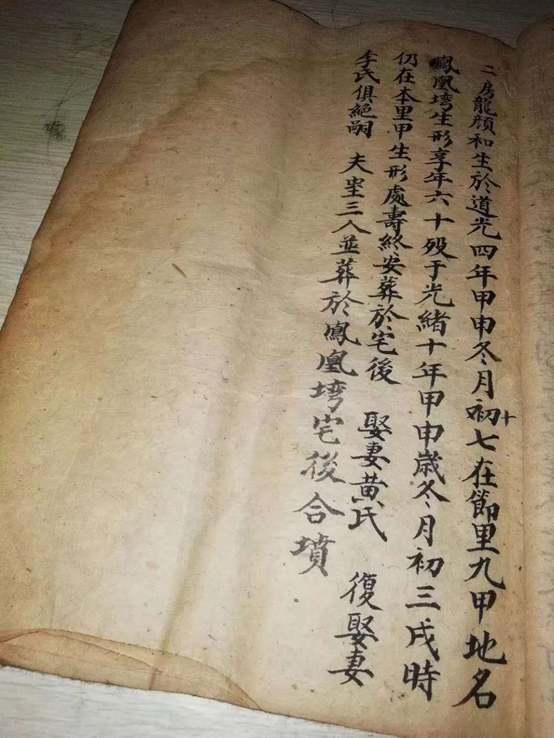 二房龍顔和生於道光四年甲申冬月初十七在節里九甲地名
鳳凰塆生形享年六十殁于光緒十年甲申歳冬月初三戌時
仍在本里甲生形處壽終安葬於宅後 娶妻黄氏 復娶妻
李氏俱絕嗣 夫室三人並葬於鳳凰塆宅後合墳